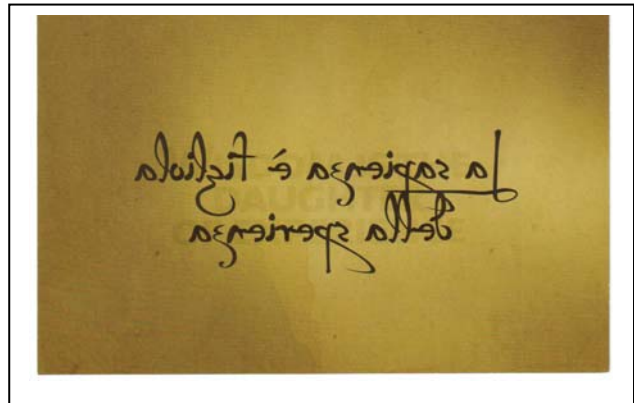 La sapienza è figliola
della sperienza